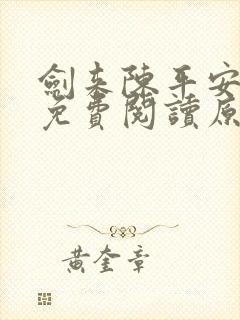 劍來陳平安
免費閱讀原
黃奎章